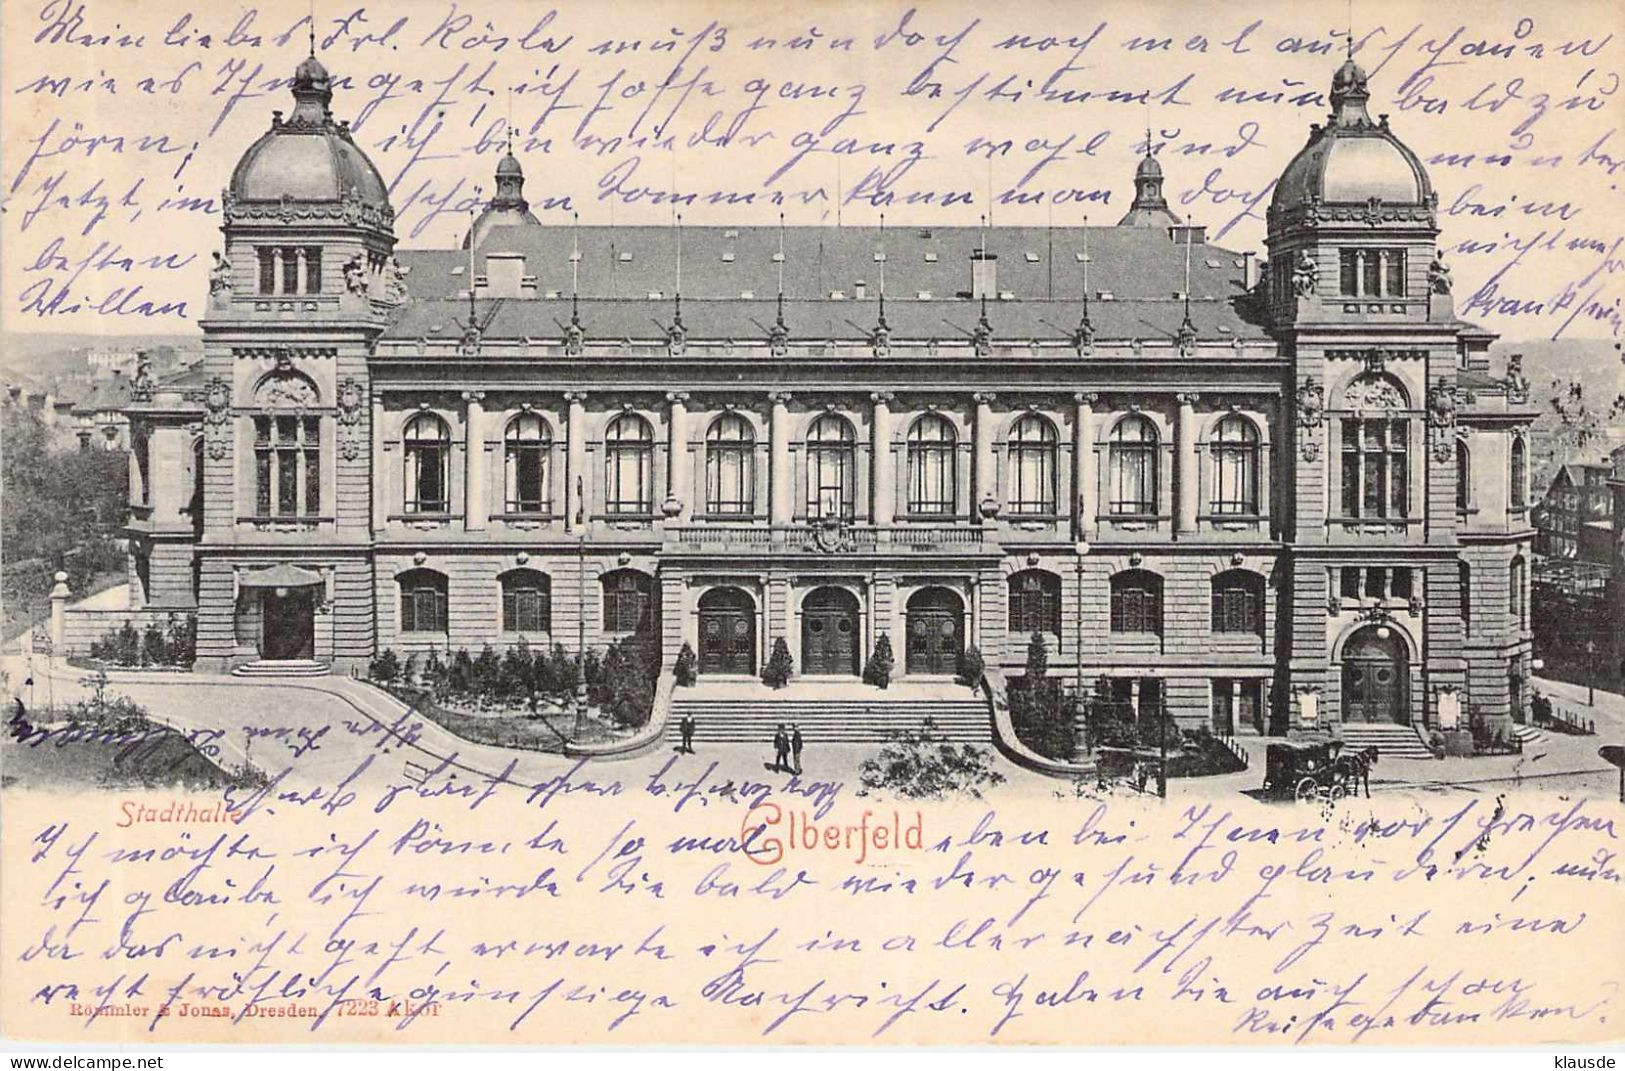 Mein liebes Frl. Rösle muß nun doch noch mal ausschauen,
wie es Ihnen geht, ich hoffe ganz bestimmt nun bald zu
hören; ich bin wieder ganz wohl und munter.
Jetzt, im schönen Sommer, kann man doch beim
besten nicht mehr
Willen krank sein
Stadthalle
Elberfeld
Ich möchte, ich könnte so mal eben bei Ihnen vorsprechen
ich glaube, ich würde Sie bald wieder gesund plaudern; nun
da das nicht geht, erwarte ich in allernächster Zeit eine
recht fröhliche günstige Nachricht. Haben Sie auch schon
Reisegedanken?
Römmler & Jonas, Dresden. 7223 Akor
klausde